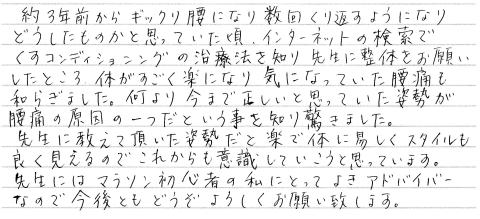 約3年前から ギックリ腰になり 数回くり返すようになり
どうしたものかと思っていた頃、インターネットの検索で
くすコンディショニングの治療法を知り 先生に整体をお願い
したところ、体がすごく楽になり 気になっていた腰痛も
和らぎました。何より 今まで正しいと思っていた姿勢が
腰痛の原因の一つだという事を知り驚きました。
先生に教えて頂いた姿勢だと楽で体に易しくスタイルも
良く見えるので これからも意識していこうと思っています。
先生には マラソン初心者の私にとって よき アドバイバー
なので今後とも どうぞ よろしくお願い致します。